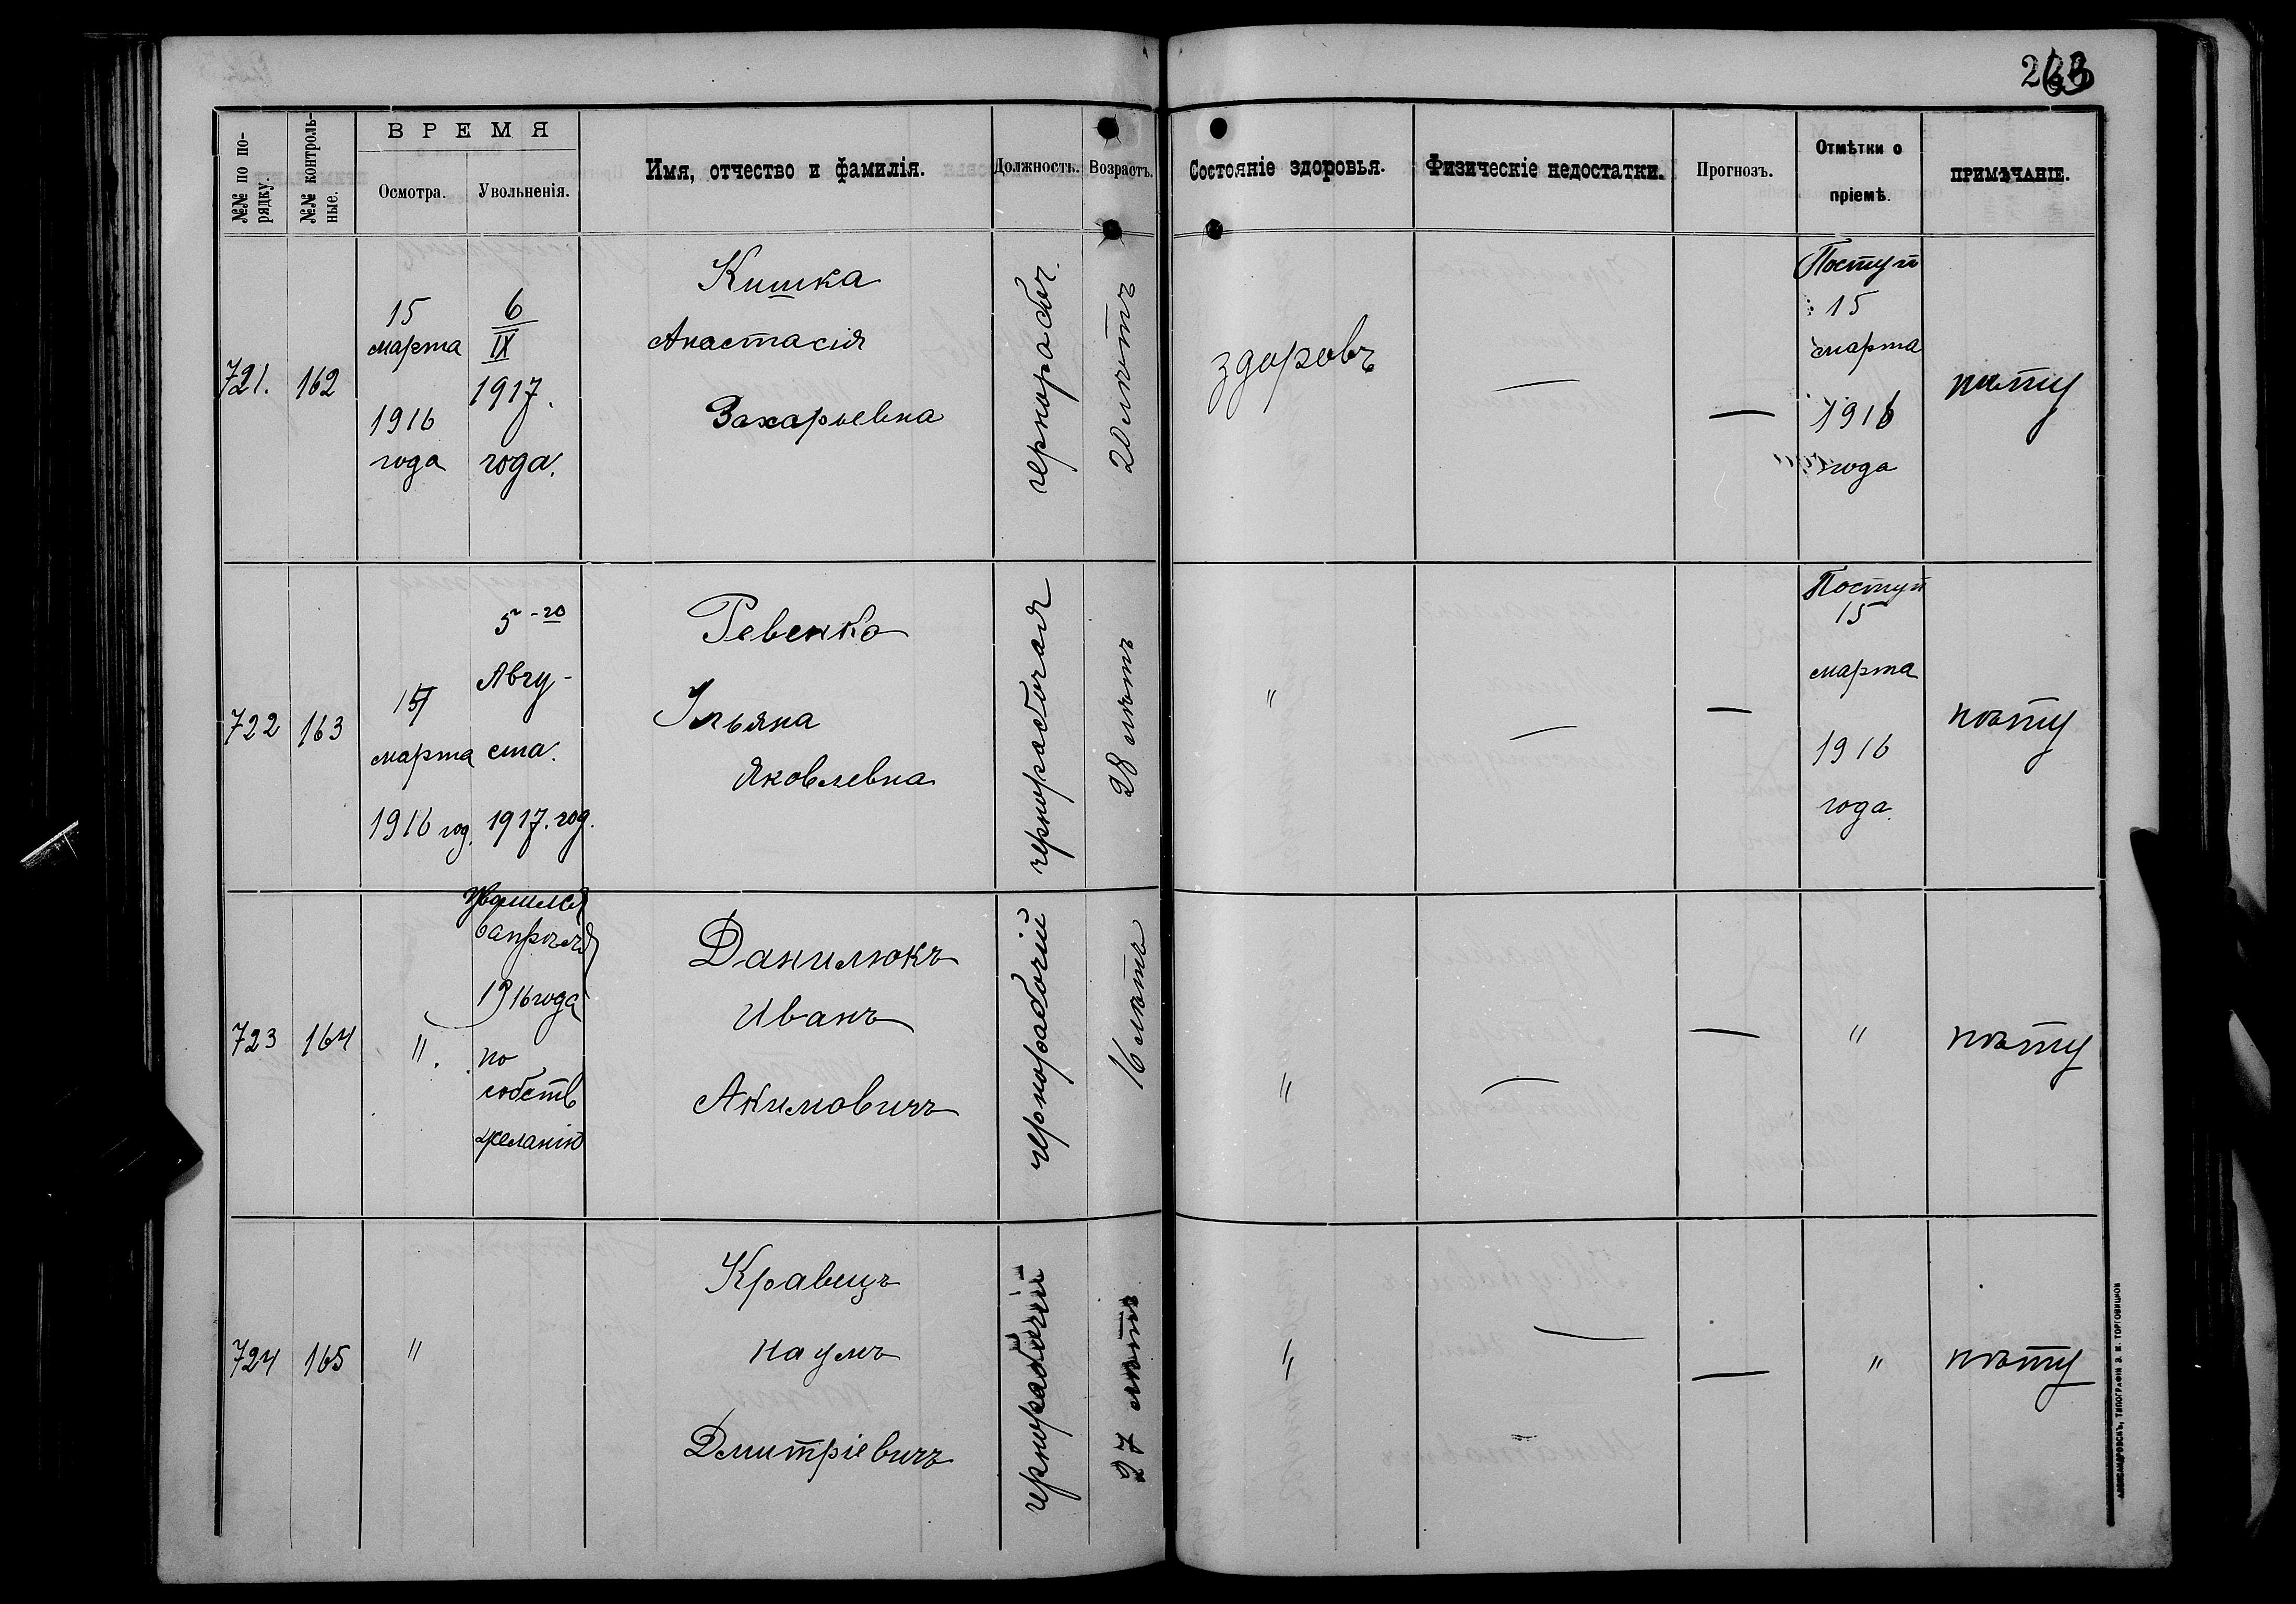 263
№№ по по-
рядку.
№№ контроль-
ные.
ВРЕМЯ
Осмотра.
Увольненія.
Имя, отчество и фамилія.
Должность.
Возрастъ.
Состояніе здоровья.
Физическіе недостатки.
Прогнозъ.
Отмѣтки о
пріемѣ.
ПРИМѢЧАНІЕ.
721.
162
15
марта
1916
года
6
IX
1917.
года.
Кишка
Анастасія
Захарьевна
чернорабоч.
20 лѣтъ
здоровъ
—
—
Поступ
15
марта
1916
года
722
163
15
марта
1916 год.
5-го
Авгу-
ста.
1917. год.
Ревенко
Ульяна
Яковлевна
чернорабочая
28 лѣтъ
"
—
—
Поступ
15
марта
1916
года.
723
164
"
6 апрѣля
1916 года
по
собств
желанію
Данилюкъ
Иванъ
Акимовичъ
чернорабочій
16 лѣтъ
"
—
—
"
724
165
"
Кравецъ
Наумъ
Дмитріевичъ
чернорабочій
27 лѣтъ
"
—
—
"
АЛЕКСАНДРОВСКЪ, ТИПОГРАФІЯ Э. И. ТОРГОВИЦКОЙ